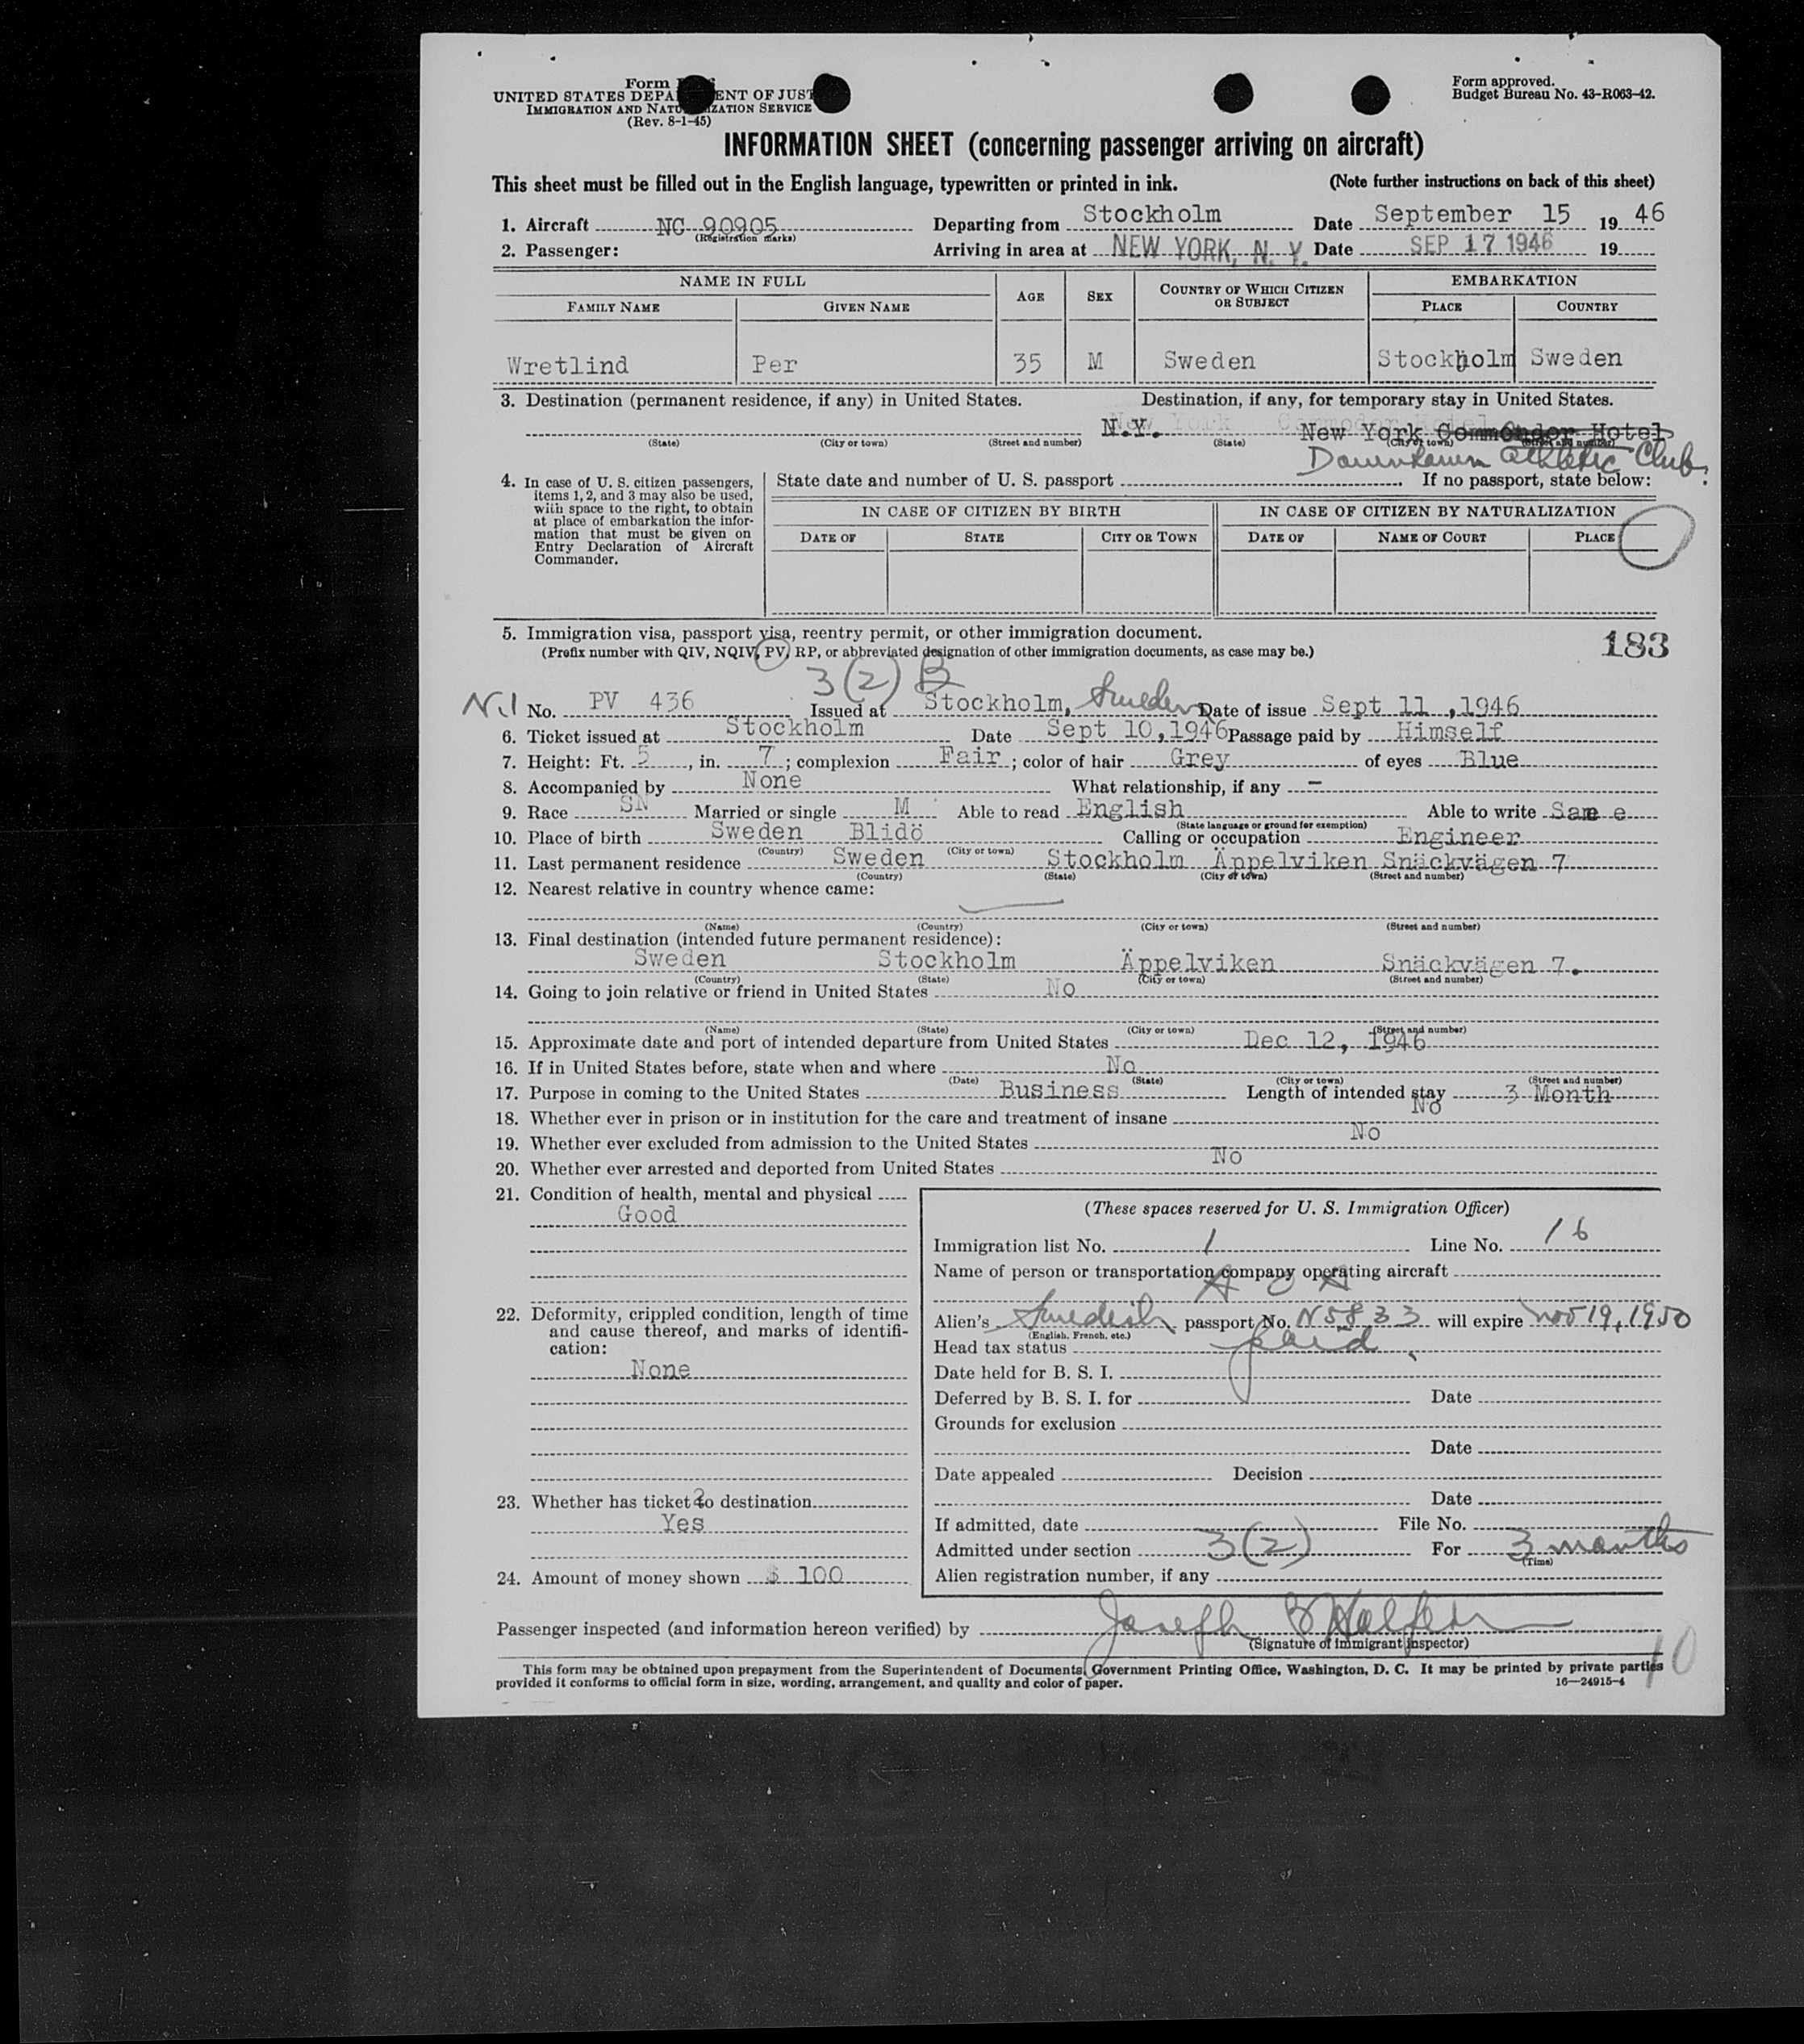 Form
UNITED STATES DEPA ENT OF JUST
IMMIGRATION AND NATU IZATION SERVICE
(Rev. 8-1-45)
Form approved.
Budget Bureau No. 43-R063-42.
INFORMATION SHEET (concerning passenger arriving on aircraft)
This sheet must be filled out in the English language, typewritten or printed in ink. (Note further instructions on back of this sheet)
1. Aircraft NC 90905 Departing from Stockholm Date September 15 19 46
(Registration marks)
2. Passenger: Arriving in area at NEW YORK, N. Y. Date SEP 17 1946 19
NAME IN FULL AGE SEX COUNTRY OF WHICH CITIZEN OR SUBJECT EMBARKATION
FAMILY NAME GIVEN NAME PLACE COUNTRY
Wretlind Per 35 M Sweden Stockholm Sweden
3. Destination (permanent residence, if any) in United States. Destination, if any, for temporary stay in United States.
N.Y. New York Commondor Hotel
(State) (City or town) (Street and number) (State) (City or town) (Street and number)
Downtown Athletic Club.
4. In case of U. S. citizen passengers, items 1, 2, and 3 may also be used, with space to the right, to obtain at place of embarkation the information that must be given on Entry Declaration of Aircraft Commander.
State date and number of U. S. passport If no passport, state below:
IN CASE OF CITIZEN BY BIRTH IN CASE OF CITIZEN BY NATURALIZATION
DATE OF STATE CITY OR TOWN DATE OF NAME OF COURT PLACE
5. Immigration visa, passport visa, reentry permit, or other immigration document.
183
(Prefix number with QIV, NQIV, PV, RP, or abbreviated designation of other immigration documents, as case may be.)
3(2) B
No. PV 436 Issued at Stockholm, Sweden Date of issue Sept 11 ,1946
6. Ticket issued at Stockholm Date Sept 10,1946 Passage paid by Himself
7. Height: Ft. 5, in. 7; complexion Fair; color of hair Grey of eyes Blue
8. Accompanied by None What relationship, if any -
9. Race SN Married or single M Able to read English Able to write Same
(State language or ground for exemption)
10. Place of birth Sweden Blidö Calling or occupation Engineer
(Country) (City or town)
11. Last permanent residence Sweden Stockholm Äppelviken Snäckvägen 7
(Country) (State) (City or town) (Street and number)
12. Nearest relative in country whence came:
(Name) (Country) (City or town) (Street and number)
13. Final destination (intended future permanent residence):
Sweden Stockholm Äppelviken Snäckvägen 7.
(Country) (State) (City or town) (Street and number)
14. Going to join relative or friend in United States No
(Name) (State) (City or town) (Street and number)
15. Approximate date and port of intended departure from United States Dec 12, 1946
16. If in United States before, state when and where No
(Date) (State) (City or town) (Street and number)
17. Purpose in coming to the United States Business Length of intended stay 3 Month
18. Whether ever in prison or in institution for the care and treatment of insane No
19. Whether ever excluded from admission to the United States No
20. Whether ever arrested and deported from United States No
21. Condition of health, mental and physical
Good
22. Deformity, crippled condition, length of time
and cause thereof, and marks of identifi-
cation:
None
23. Whether has ticket to destination
Yes
24. Amount of money shown $ 100
(These spaces reserved for U. S. Immigration Officer)
Immigration list No. 1 Line No. 16
Name of person or transportation company operating aircraft
A O A
Alien's Swedish passport No. N5833 will expire Nov 19, 1950
(English, French, etc.)
Head tax status paid
Date held for B. S. I.
Deferred by B. S. I. for Date
Grounds for exclusion
Date
Date appealed Decision
Date
If admitted, date File No.
Admitted under section 3(2) For 3 months
(Time)
Alien registration number, if any
Passenger inspected (and information hereon verified) by Joseph
(Signature of immigrant inspector)
This form may be obtained upon prepayment from the Superintendent of Documents, Government Printing Office, Washington, D. C. It may be printed by private parties
provided it conforms to official form in size, wording, arrangement, and quality and color of paper. 16—24915-4
10